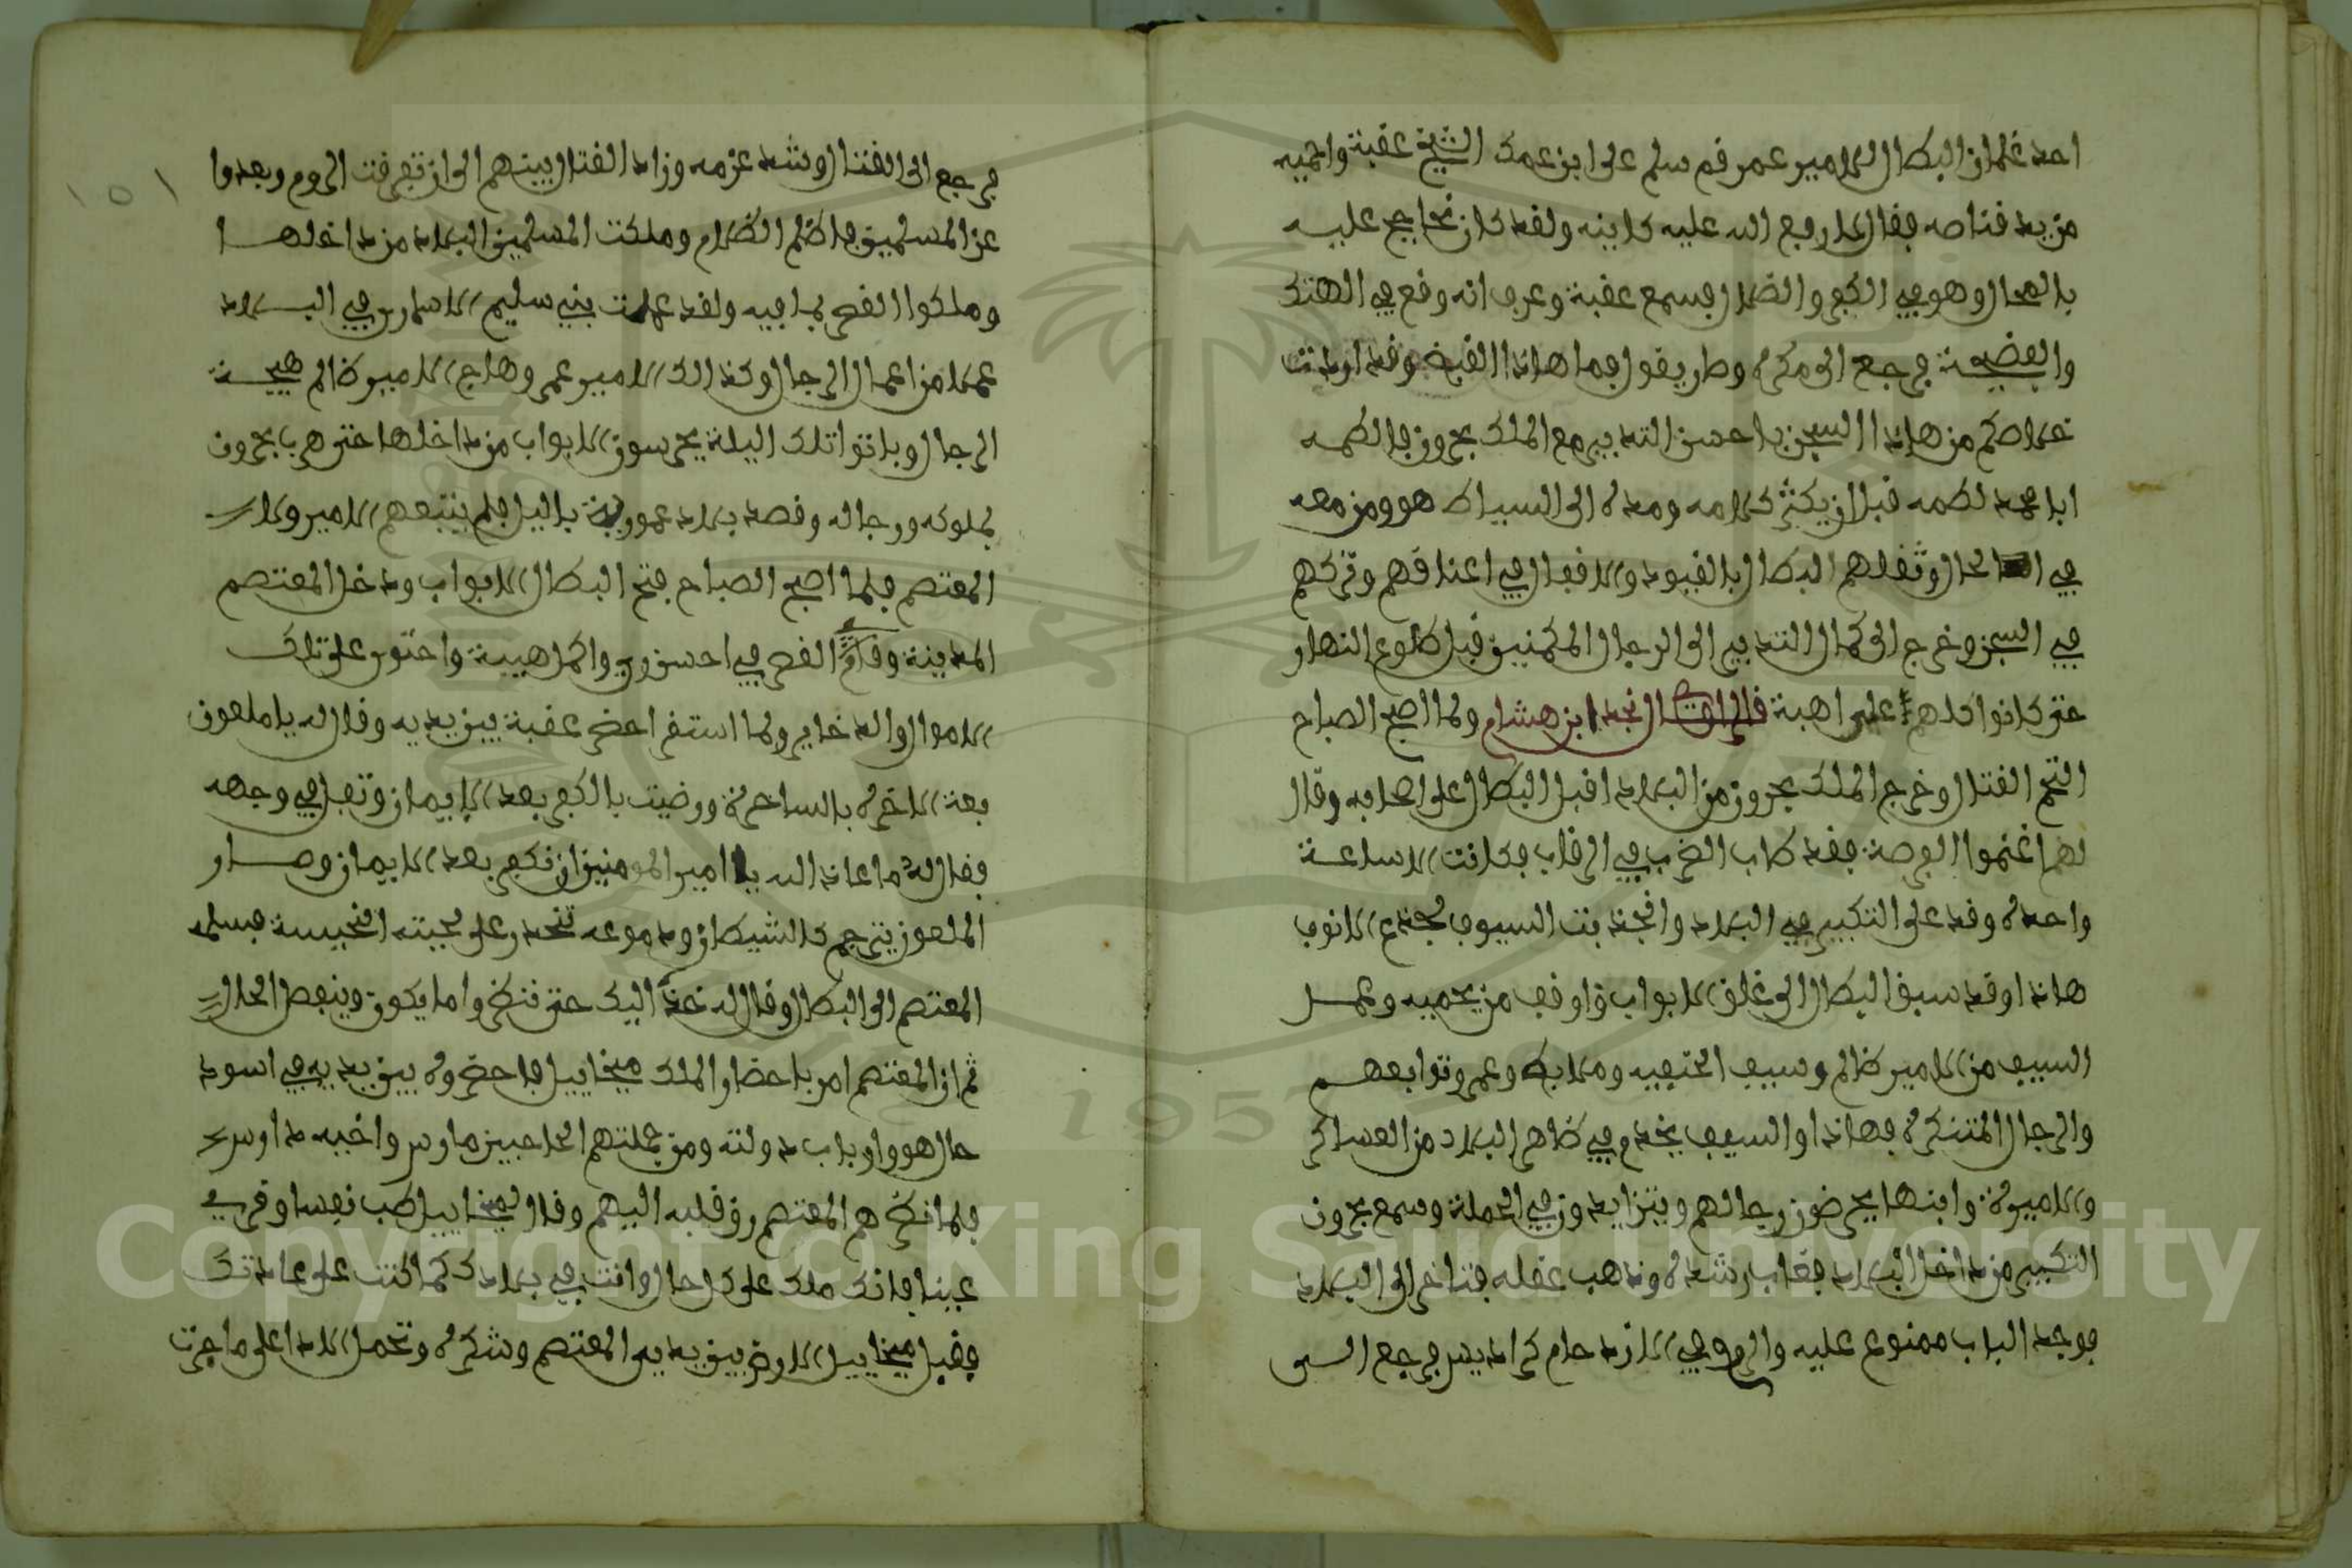 احد غلمان البطال للامير عمر قم سلم على ابن عمك الشيخ عقبة واحميه
من يد قناصه فقال لا رفع الله عليه كاينه ولقد كان نحا يج عليه
بالمحال وهو في الكفر والضلال فسمع عقبة وعرف انه وقع في الهتك
والفضيحة فرجع الى مكره وصار يقول فما هاذا القبض وقد اردت
خلاصكم من هاذا السجن باحسن التدبير مع الملك بحرون فالطمه
ابا محمد لطمه قبل ان يكثر كلامه ومده الى السياط هو ومن معه
في الحال وثقلهم البطال بالقيود والاقفال في اعناقهم وتركهم
في السجن وخرج الى كمال التدبير الى الرجال المكمنين قبل طلوع النهار
حتى كانوا كلهم على اهبة قال الراوي نجد ابن هشام ولما اصبح الصباح
التحم القتال وخرج الملك بحرون من البلاد اقبل البطال على اصحابه وقال
لهم اغنموا الفرصة فقد طاب الضرب في الرقاب فكانت الا ساعة
واحده وقد على التكبير في البلاد وانجذبت السيوف لجدع الانوف
هاذا وقد سبق البطال الى غلق الابواب واوقف من يحميه وعمل
السيف من الامير ظالم وسيف الحنيفيه وملاعب وعمر وتوابعهم
والرجال المتنكره فهاذا والسيف يخدم في ظاهر البلاد من العساكر
والاميرة وابنها يحرضون رجالهم ويتزايدون في الحملة وسمع بحرون
التكبير من داخل البلاد فغاب رشده وذهب عقله فتاخر الى البلاد
فوجد الباب ممنوع عليه والروم في الازدحام كراديس فرجع الى
فرجع الى القتال وشد عزمه وزاد القتال بينهم الى ان تفرقت الروم وبعدوا
عن المسلمين فاظلم الظلام وملكت المسلمين البلاد من داخلها
وملكوا القصر بما فيه ولقد عملت بني سليم الاسارى في البلاد
عملا من اعمال الرجال وكذالك الامير عمر وهاج الامير ظالم هيجة
الرجال وباتوا تلك اليلة يحرسون الابواب من داخلها حتى هرب بحرون
بملوكه ورجاله وقصد بلاد عمورية باليل فلم يتبعهم الامير ولا
المعتصم فلما اصبح الصباح فتح البطال الابواب ودخل المعتصم
المدينة وقام القصر في احسن زي واكمل هيبة واحتوى على تلك
الاموال والدخاير ولما استقر احضر عقبة بين يديه وقال له يا ملعون
بعت الاخره بالساخرة ورضيت بالكفر بعد الايمان وتفل في وجهه
فقال له معاذ الله يا امير المومنين ان نكفر بعد الايمان وصار
الملعون يترجم كالشيطان ودموعه تنحدر على لحيته الخبيسة فسلمه
المعتصم الى البطال وقال له خذه اليك حتى ننظروا ما يكون وينفصل الحال
ثم ان المعتصم امر باحضار الملك ميخاييل فاحضروه بين يديه في اسود
حال هو وارباب دولته ومن جملتهم الحاجبين ماوس واخيه داوس
فلما نظرهم المعتصم رق قلبه اليهم وقال لميخاييل طب نفسا وقري
عينا فانك ملك على كل حال وانت في بلادك كما كنت على عادتك
فقبل ميخاييل الارض بين يدي المعتصم وشكره وتحمل الادا على ما جرت
١٥١
Copyright © King Saud University
1957